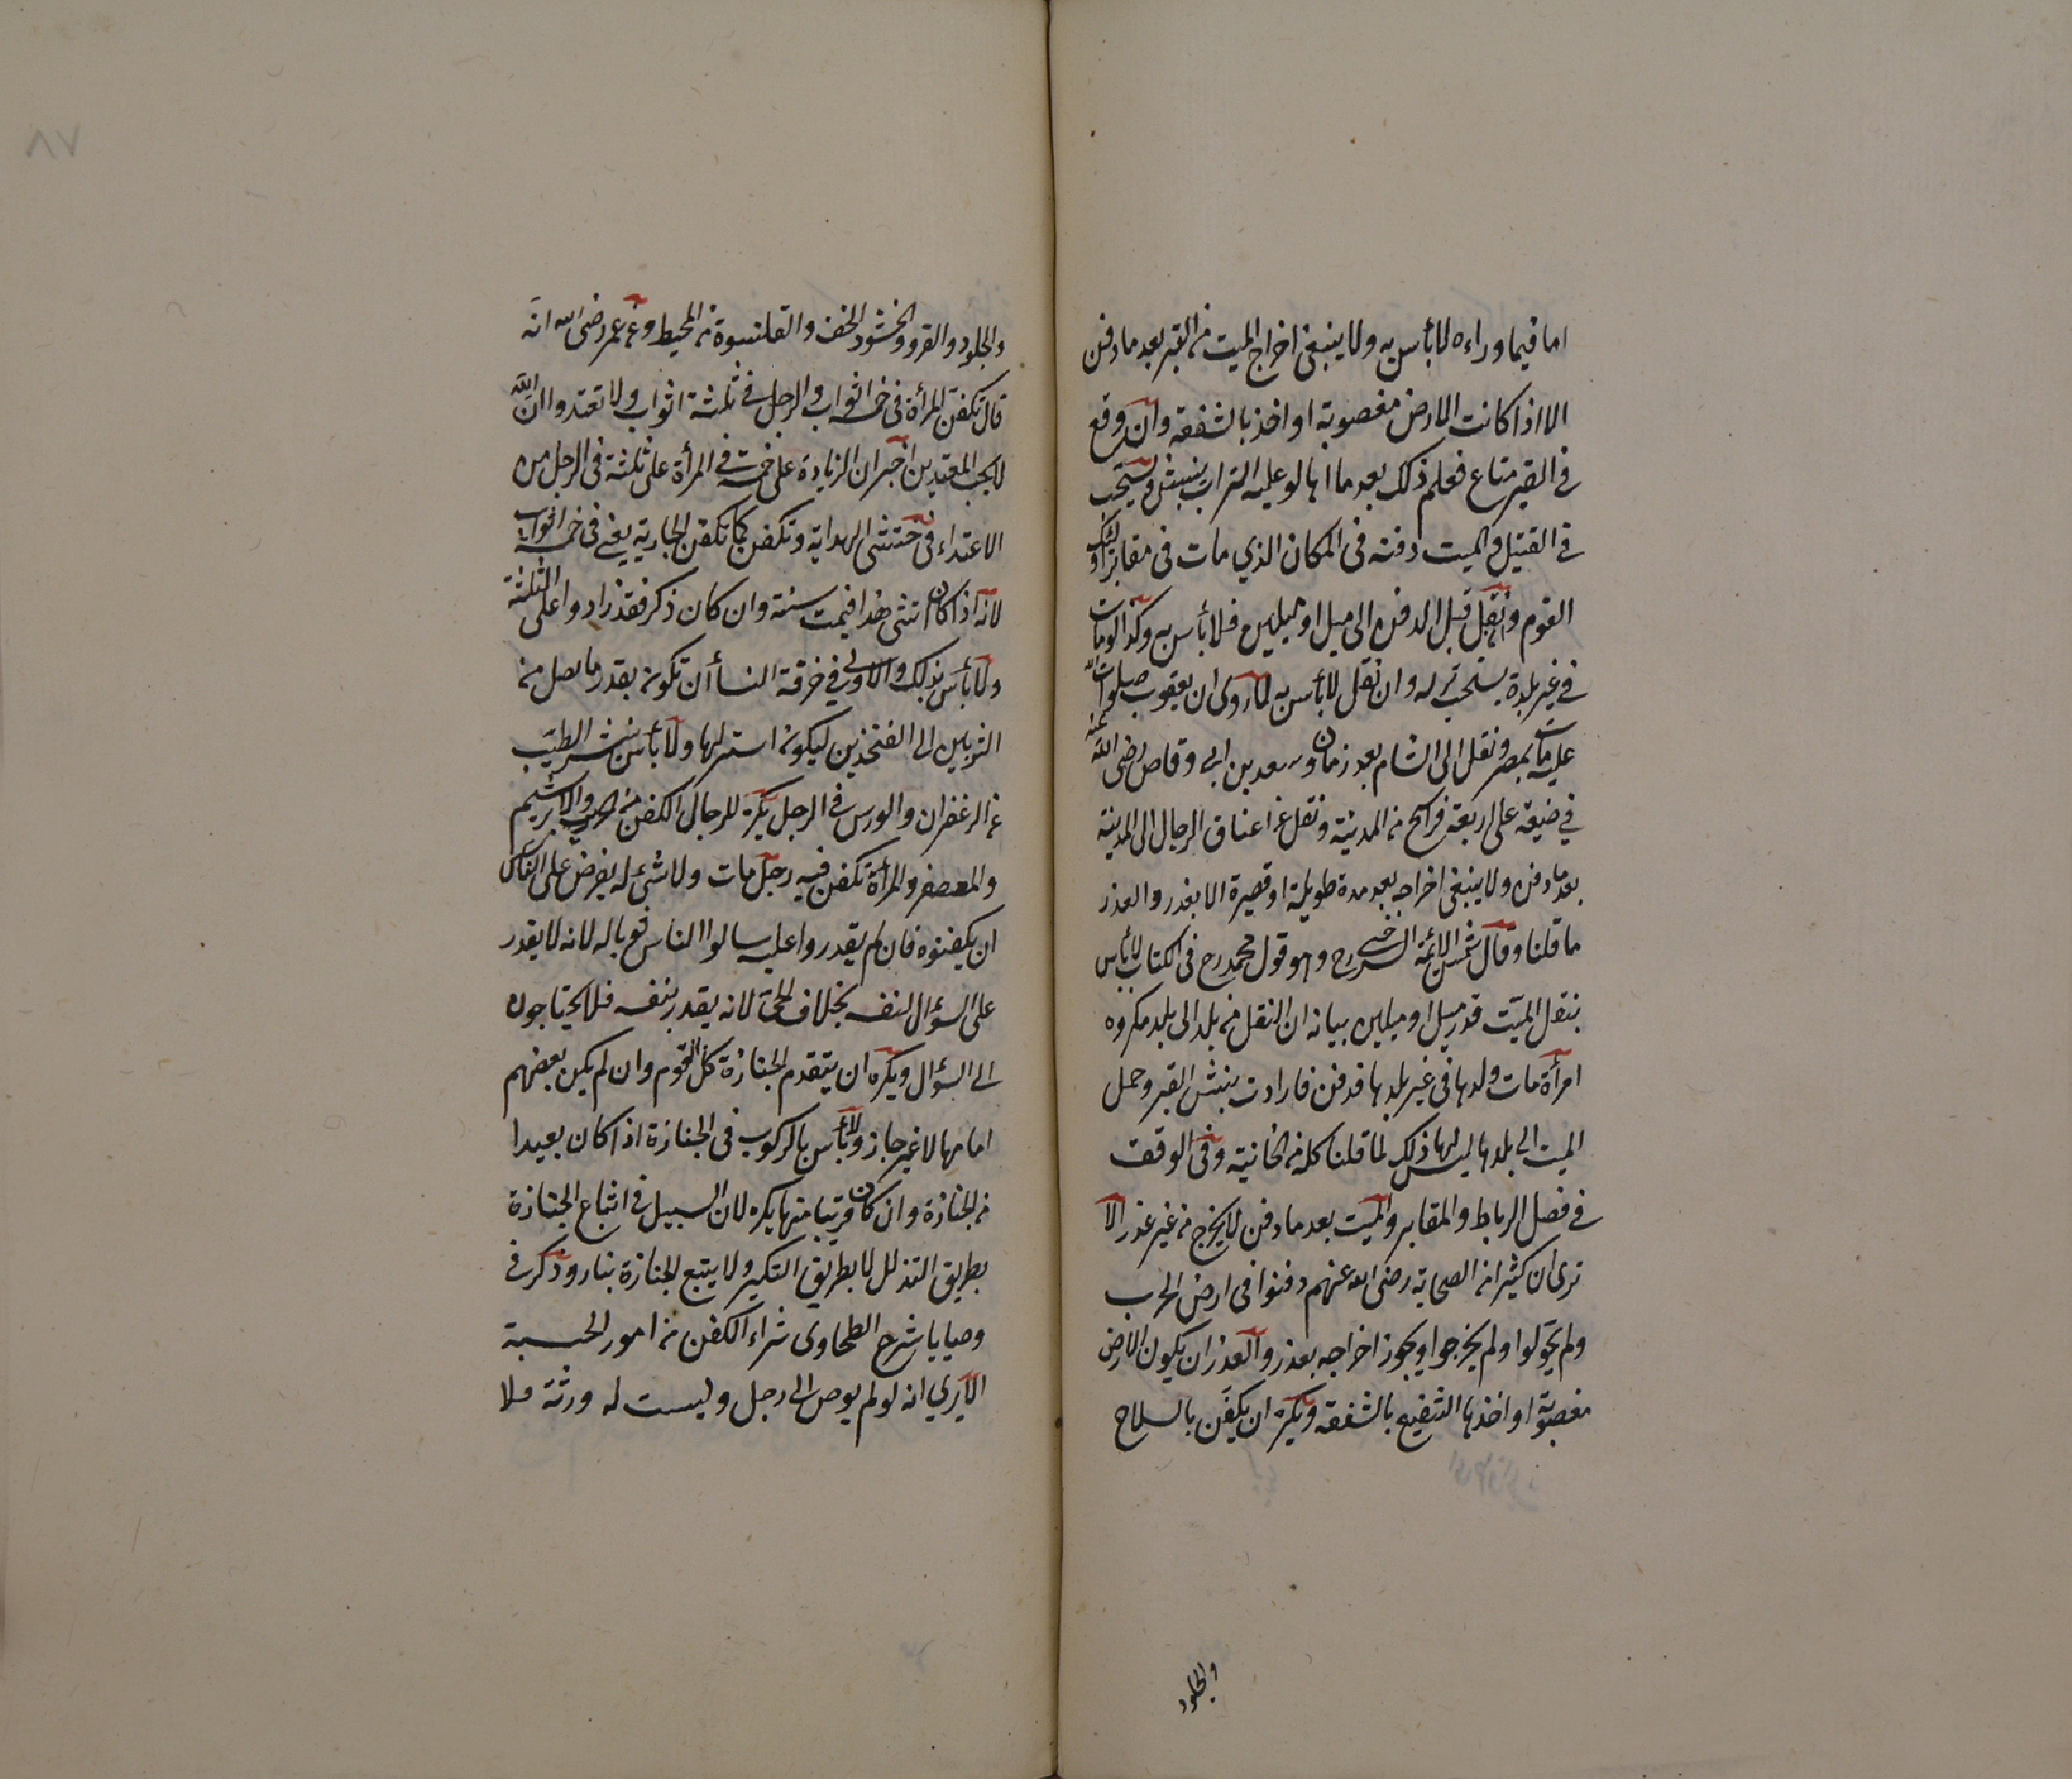 اما فيما وراءه لا بأس به ولا ينبغي اخراج الميت من القبر بعد ما دفن
الا اذا كانت الارض مغصوبة او اخذ بالشفعة وان وقع
في القبر متاع فعلم ذلك بعد ما اهالو عليه التراب ينبش ويستحب
في القتيل والميت دفنه في المكان الذي مات في مقابر اولئك
القوم وان نقل قبل الدفن الى ميل او ميلين فلا بأس به وكذا لو مات
في غير بلدة يستحب تركه وان نقل لا بأس به لما روى ان يعقوب صلوات الله
عليه مات بمصر ونقل الى الشام بعد زمان وسعد بن ابي وقاص رضى الله عنه
في ضيعة على اربعة فراسخ من المدينة ونقل على اعناق الرجال الى المدينة
بعد ما دفن ولا ينبغي اخراجه بعد مدة طويلة او قصيرة الا بعذر والعذر
ما قلنا وقال شمس الائمة السرخسي رح وهو قول محمد رح في الكتاب لا بأس
بنقل الميت قدر ميل او ميلين بيانه ان النقل من بلد الى بلد مكروه
امرأة مات ولدها في غير بلدها فدفن فارادت ينبش القبر وحمل
الميت الى بلدها ليس لها ذلك لما قلنا كله من الخانية وفي الوقف
في فصل الرباط والمقابر والميت بعد ما دفن لا يخرج من غير عذر الا
ترى ان كثيرا من الصحابة رضى الله عنهم دفنوا في ارض الحرب
ولم يحولوا ولم يخرجوا ويجوز اخراجه بعذر والعذر ان يكون الارض
مغصوبة او اخذها الشفيع بالشفعة ويكره ان يكفن بالسلاح
والجلود
٧٨
والجلود والفرو والحشو والخف والقلنسوة من المحيط وعن عمر رضى الله انه
قال تكفن المرأة في خمسة اثواب والرجل في ثلثة اثواب ولا تعتدوا ان الله
لا يحب المعتدين اخبر ان الزيادة على خمسة في المرأة على ثلثة في الرجل من
الاعتداء في خنثى الهداية وتكفن كما تكفن الجارية يعني في خمسة اثواب
لانه اذا كان انثى فقد اقيمت سنة وان كان ذكر فقد زادوا على الثلثة
ولا بأس بذلك والاولى في خرقة النسأ ان تكون بقدر ما يصل من
الثديين الى الفخذين ليكون استر لها ولا بأس الطيب
غير الزعفران والورس في الرجل يكره للرجال الكفن من الحرير والابريشم
والمعصفر والمرأة تكفن فيه رجل مات ولا شيء له يفرض على الناس
ان يكفنوه فان لم يقدروا عليه سالوا الناس ثوبا له لانه لا يقدر
على السؤال لنفسه بخلاف الحي لانه يقدر بنفسه فلا يحتاجون
الى السؤال ويكره ان يتقدم الجنازة كل القوم وان لم يكن بعضهم
امامها لا غير جاز ولا بأس بالركوب في الجنازة اذا كان بعيدا
من الجنازة وان كان قريبا منها يكره لان السبيل في اتباع الجنازة
بطريق التذلل لا بطريق التكبر ولا يتبع الجنازة بنار وذكر في
وصايا شرح الطحاوى شراء الكفن من امور الحسبة
الا يرى انه لو لم يوص الى رجل وليست له ورثة فلا